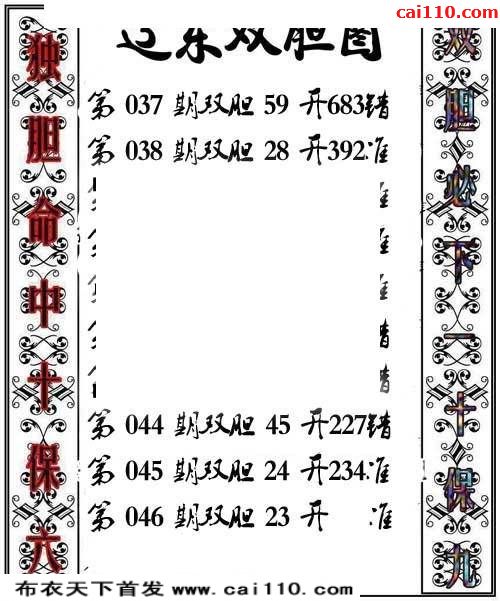 cai110.com
过东双胆图
独胆命中十保六
双胆必下一十保九
第 037 期双胆 59 开683错
第 038 期双胆 28 开392准
准
准
准
错
错
第 044 期双胆 45 开227错
第 045 期双胆 24 开234准
第 046 期双胆 23 开 准
布衣天下首发 www.cai110.com